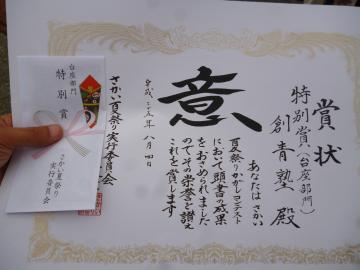 賞状
特別賞(台座部門)
創青塾殿
あなたはさかい
夏祭り・かかしコンテスト
において頭書の成果
をおさめられました
のでその栄誉を讃え
これを賞します
意
平成二十五年八月四日
さかい夏祭り実行委員会
台座部門
特別賞
さかい夏祭り
実行委員会